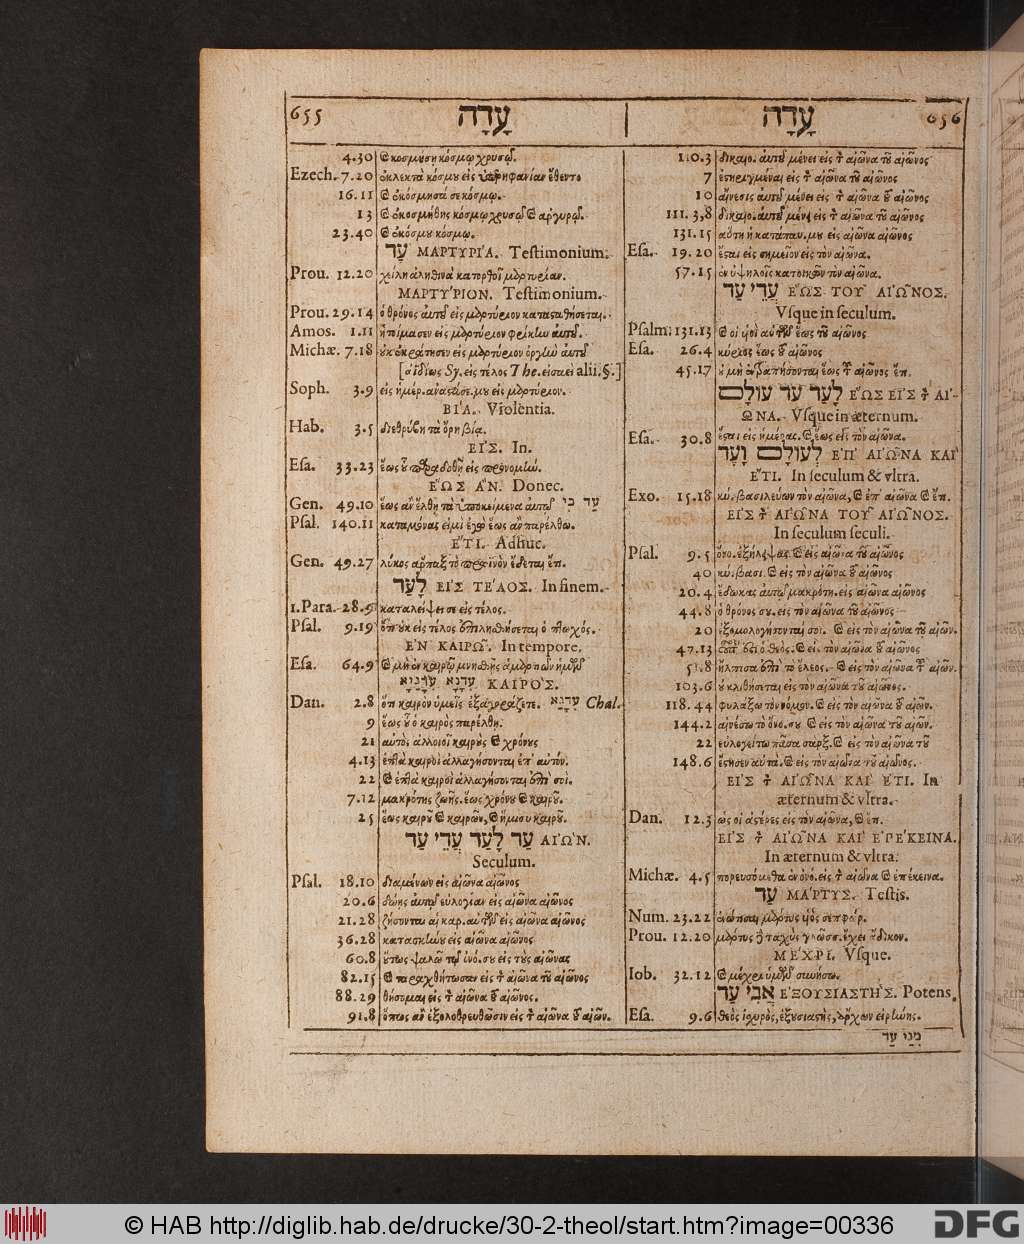 655 עָדָה
4.30 Ϗ κοσμήση κόσμῳ χρυσῷ.
Ezech. 7.20 ἐκλεκτὰ κόσμου εἰς ὑπερηφανίαν ἔθεντο
16.11 Ϗ ἐκόσμησά σε κόσμῳ.
13 Ϗ ἐκοσμήθης κόσμῳ χρυσῷ Ϗ ἀργυρῷ.
23.40 Ϗ ἐκόσμου κόσμῳ.
עָד ΜΑΡΤΥΡΙΆ. Testimonium.
Prou. 12.20 χείλη ἀληθινὰ κατορθοῖ μαρτυρίαν.
ΜΑΡΤΎΡΙΟΝ. Testimonium.
Prou. 29.14 ὁ θρόνος αὐτοῦ εἰς μαρτύριον κατασταθήσεται.
Amos. 1.11 ἥρπασεν εἰς μαρτύριον φρίκην αὐτοῦ.
Michæ. 7.18 οὐκ ἐκράτησεν εἰς μαρτύριον ὀργὴν αὐτοῦ
[ἀϊδίως Sy. εἰς τέλος The. εἰσαεὶ alii. §.]
Soph. 3.9 εἰς ἡμέρ. ἀναστάσε. μου εἰς μαρτύριον.
ΒΊΑ. Violentia.
Hab. 3.5 διεθρύβη τὰ ὄρη βίᾳ.
ΕἸΣ. In.
Esa. 33.23 ἕως οὗ παραδοθῇ εἰς προνομήν.
ἝΩΣ ἌΝ. Donec.
Gen. 49.10 ἕως ἂν ἔλθῃ τὰ ἀποκείμενα αὐτῷ עַד כִּי
Psal. 140.11 καταμόνας εἰμὶ ἐγὼ ἕως ἂν παρέλθω.
ἜΤΙ. Adhuc.
Gen. 49.27 λύκος ἅρπαξ τὸ πρωϊνὸν ἔδεται ἔτι.
לָעַד ΕἸΣ ΤΈΛΟΣ. In finem.
1. Para. 28.9 καταλείψει σε εἰς τέλος.
Psal. 9.19 ὅτι οὐκ εἰς τέλος ἐπιλησθήσεται ὁ πτωχός.
ἘΝ ΚΑΙΡΩ͂. In tempore.
Esa. 64.9 Ϗ μὴ ἐν καιρῷ μνησθῇς ἁμαρτιῶν ἡμῶν
עִדָנָא עִדָּנַיָּא ΚΑΙΡΌΣ.
Dan. 2.8 ὅτι καιρὸν ὑμεῖς ἐξαγοράζετε. עִדָנָא Chal.
9 ἕως οὗ ὁ καιρὸς παρέλθῃ.
21 αὐτὸς ἀλλοιοῖ καιροὺς Ϗ χρόνους
4.13 ἑπτὰ καιροὶ ἀλλαγήσονται ἐπ' αὐτόν.
22 Ϗ ἑπτὰ καιροὶ ἀλλαγήσονται ἐπὶ σοί.
7.12 μακρότης ζωῆς. ἕως χρόνου Ϗ καιροῦ.
25 ἕως καιροῦ Ϗ καιρῶν, Ϗ ἥμισυ καιροῦ.
עַד לָעַד עֲדֵי עַד ΑἸΏΝ.
Seculum.
Psal. 18.10 διαμένων εἰς αἰῶνα αἰῶνος
20.6 δώσεις αὐτῷ εὐλογίαν εἰς αἰῶνα αἰῶνος
21.28 ζήσονται αἱ καρ. αὐτῶν εἰς αἰῶνα αἰῶνος
36.28 κατασκηνοῦ εἰς αἰῶνα αἰῶνος
60.8 οὕτως ψαλῶ τῷ ὀνό. σου εἰς τοὺς αἰῶνας
82.15 Ϗ ταραχθήτωσαν εἰς τ αἰῶνα τοῦ αἰῶνος
88.29 θήσομαι εἰς τ αἰῶνα τοῦ αἰῶνος.
91.8 ὅπως ἂν ἐξολοθρευθῶσιν εἰς τ αἰῶνα τοῦ αἰῶν.
עָדָה 656
110.3 δικαιο. αὐτοῦ μένει εἰς τ αἰῶνα τοῦ αἰῶνος
7 ἐστηριγμέναι εἰς τ αἰῶνα τοῦ αἰῶνος
10 αἴνεσις αὐτοῦ μένει εἰς τ αἰῶνα τοῦ αἰῶνος
111.3,8 δικαιο. αὐτοῦ μένει εἰς τ αἰῶνα τοῦ αἰῶνος
131.15 αὕτη ἡ κατάπαυ. μου εἰς αἰῶνα αἰῶνος
Esa. 19.20 ἔσται εἰς σημεῖον εἰς τὸν αἰῶνα.
57.15 ἐν ὑψηλοῖς κατοικῶν τὸν αἰῶνα.
עֲדֵי עַד ἝΩΣ ΤΟΥ͂ ΑἸΩ͂ΝΟΣ.
Vsque in seculum.
Psalm. 131.13 Ϗ οἱ υἱοὶ αὐτῶν ἕως τοῦ αἰῶνος
Esa. 26.4 κύριος ἕως τοῦ αἰῶνος
45.17 οὐ μὴ ἐντραπήσονται ἕως τοῦ αἰῶνος ἔτι.
לָעַד עַד עוֹלָם ἝΩΣ ΕἸΣ τ ΑἸ-
ΩΝΑ. Vsque in æternum.
Esa. 30.8 ἔσται εἰς ἡμέρας. Ϗ ἕως εἰς τὸν αἰῶνα.
לְעוֹלָם וָעֶד ἘΠ' ΑἸΩ͂ΝΑ ΚΑῚ
ἜΤΙ. In seculum & vltra.
Exo. 15.18 κύ. βασιλεύων τὸν αἰῶνα, Ϗ ἐπ' αἰῶνα Ϗ ἔτι.
ΕἸΣ τ ΑἸΩ͂ΝΑ ΤΟΥ͂ ΑἸΩ͂ΝΟΣ.
In seculum seculi.
Psal. 9.5 ὄνο. ἐξήλειψας. Ϗ εἰς αἰῶνα τοῦ αἰῶνος
40 κύ. βασι. Ϗ εἰς τὸν αἰῶνα τοῦ αἰῶνος
20.4 ἔδωκας αὐτῷ μακρότη. εἰς αἰῶνα αἰῶνος
44.8 ὁ θρόνος σου. εἰς τὸν αἰῶνα τοῦ αἰῶνος
20 ἐξομολογήσονταί σοι. Ϗ εἰς τὸν αἰῶνα τοῦ αἰῶν.
47.13 οὗτός ἐστι ὁ θεὸς. Ϗ εἰς τὸν αἰῶνα τοῦ αἰῶνος
51.8 ἤλπισα ἐπὶ τὸ ἔλεος. Ϗ εἰς τὸν αἰῶνα τοῦ αἰῶν.
103.6 οὐ κλιθήσεται εἰς τὸν αἰῶνα τοῦ αἰῶνος.
118.44 φυλάξω τὸν νόμον. Ϗ εἰς τὸν αἰῶνα τοῦ αἰῶν.
144.2 αἰνέσω τὸ ὄνο. σου Ϗ εἰς τὸν αἰῶνα τοῦ αἰῶν.
22 εὐλογείτω πᾶσα σάρξ. Ϗ εἰς τὸν αἰῶνα τοῦ
148.6 ἔστησεν αὐτὰ. Ϗ εἰς τὸν αἰῶνα τοῦ αἰῶνος.
ΕἸΣ τ ΑἸΩ͂ΝΑ ΚΑῚ ἜΤΙ. In
æternum & vltra.
Dan. 12.3 ὡς οἱ ἀστέρες εἰς τὸν αἰῶνα, Ϗ ἔτι.
ΕἸΣ τ ΑἸΩ͂ΝΑ ΚΑῚ ἘΠΈΚΕΙΝΑ.
In æternum & vltra.
Michæ. 4.5 πορευσόμεθα ἐν ὀνό. εἰς τ αἰῶνα Ϗ ἐπέκεινα.
עַד ΜΆΡΤΥΣ. Testis.
Num. 23.22 ἐνώτισαι μάρτυς υἱὸς σεπφώρ.
Prou. 12.20 μάρτυς ἢ ταχὺς γλῶσσ. ἔχει ἄδικον.
ΜΈΧΡΙ. Vsque.
Iob. 32.12 Ϗ μέχρι ὑμῶν συνήσω.
אֲבִי עַד ἘΞΟΥΣΙΑΣΤΉΣ. Potens.
Esa. 9.6 θεὸς ἰσχυρὸς, ἐξουσιαστὴς, ἄρχων εἰρήνης.
מִנִּי עַד
© HAB http://diglib.hab.de/drucke/30-2-theol/start.htm?image=00336
DFG